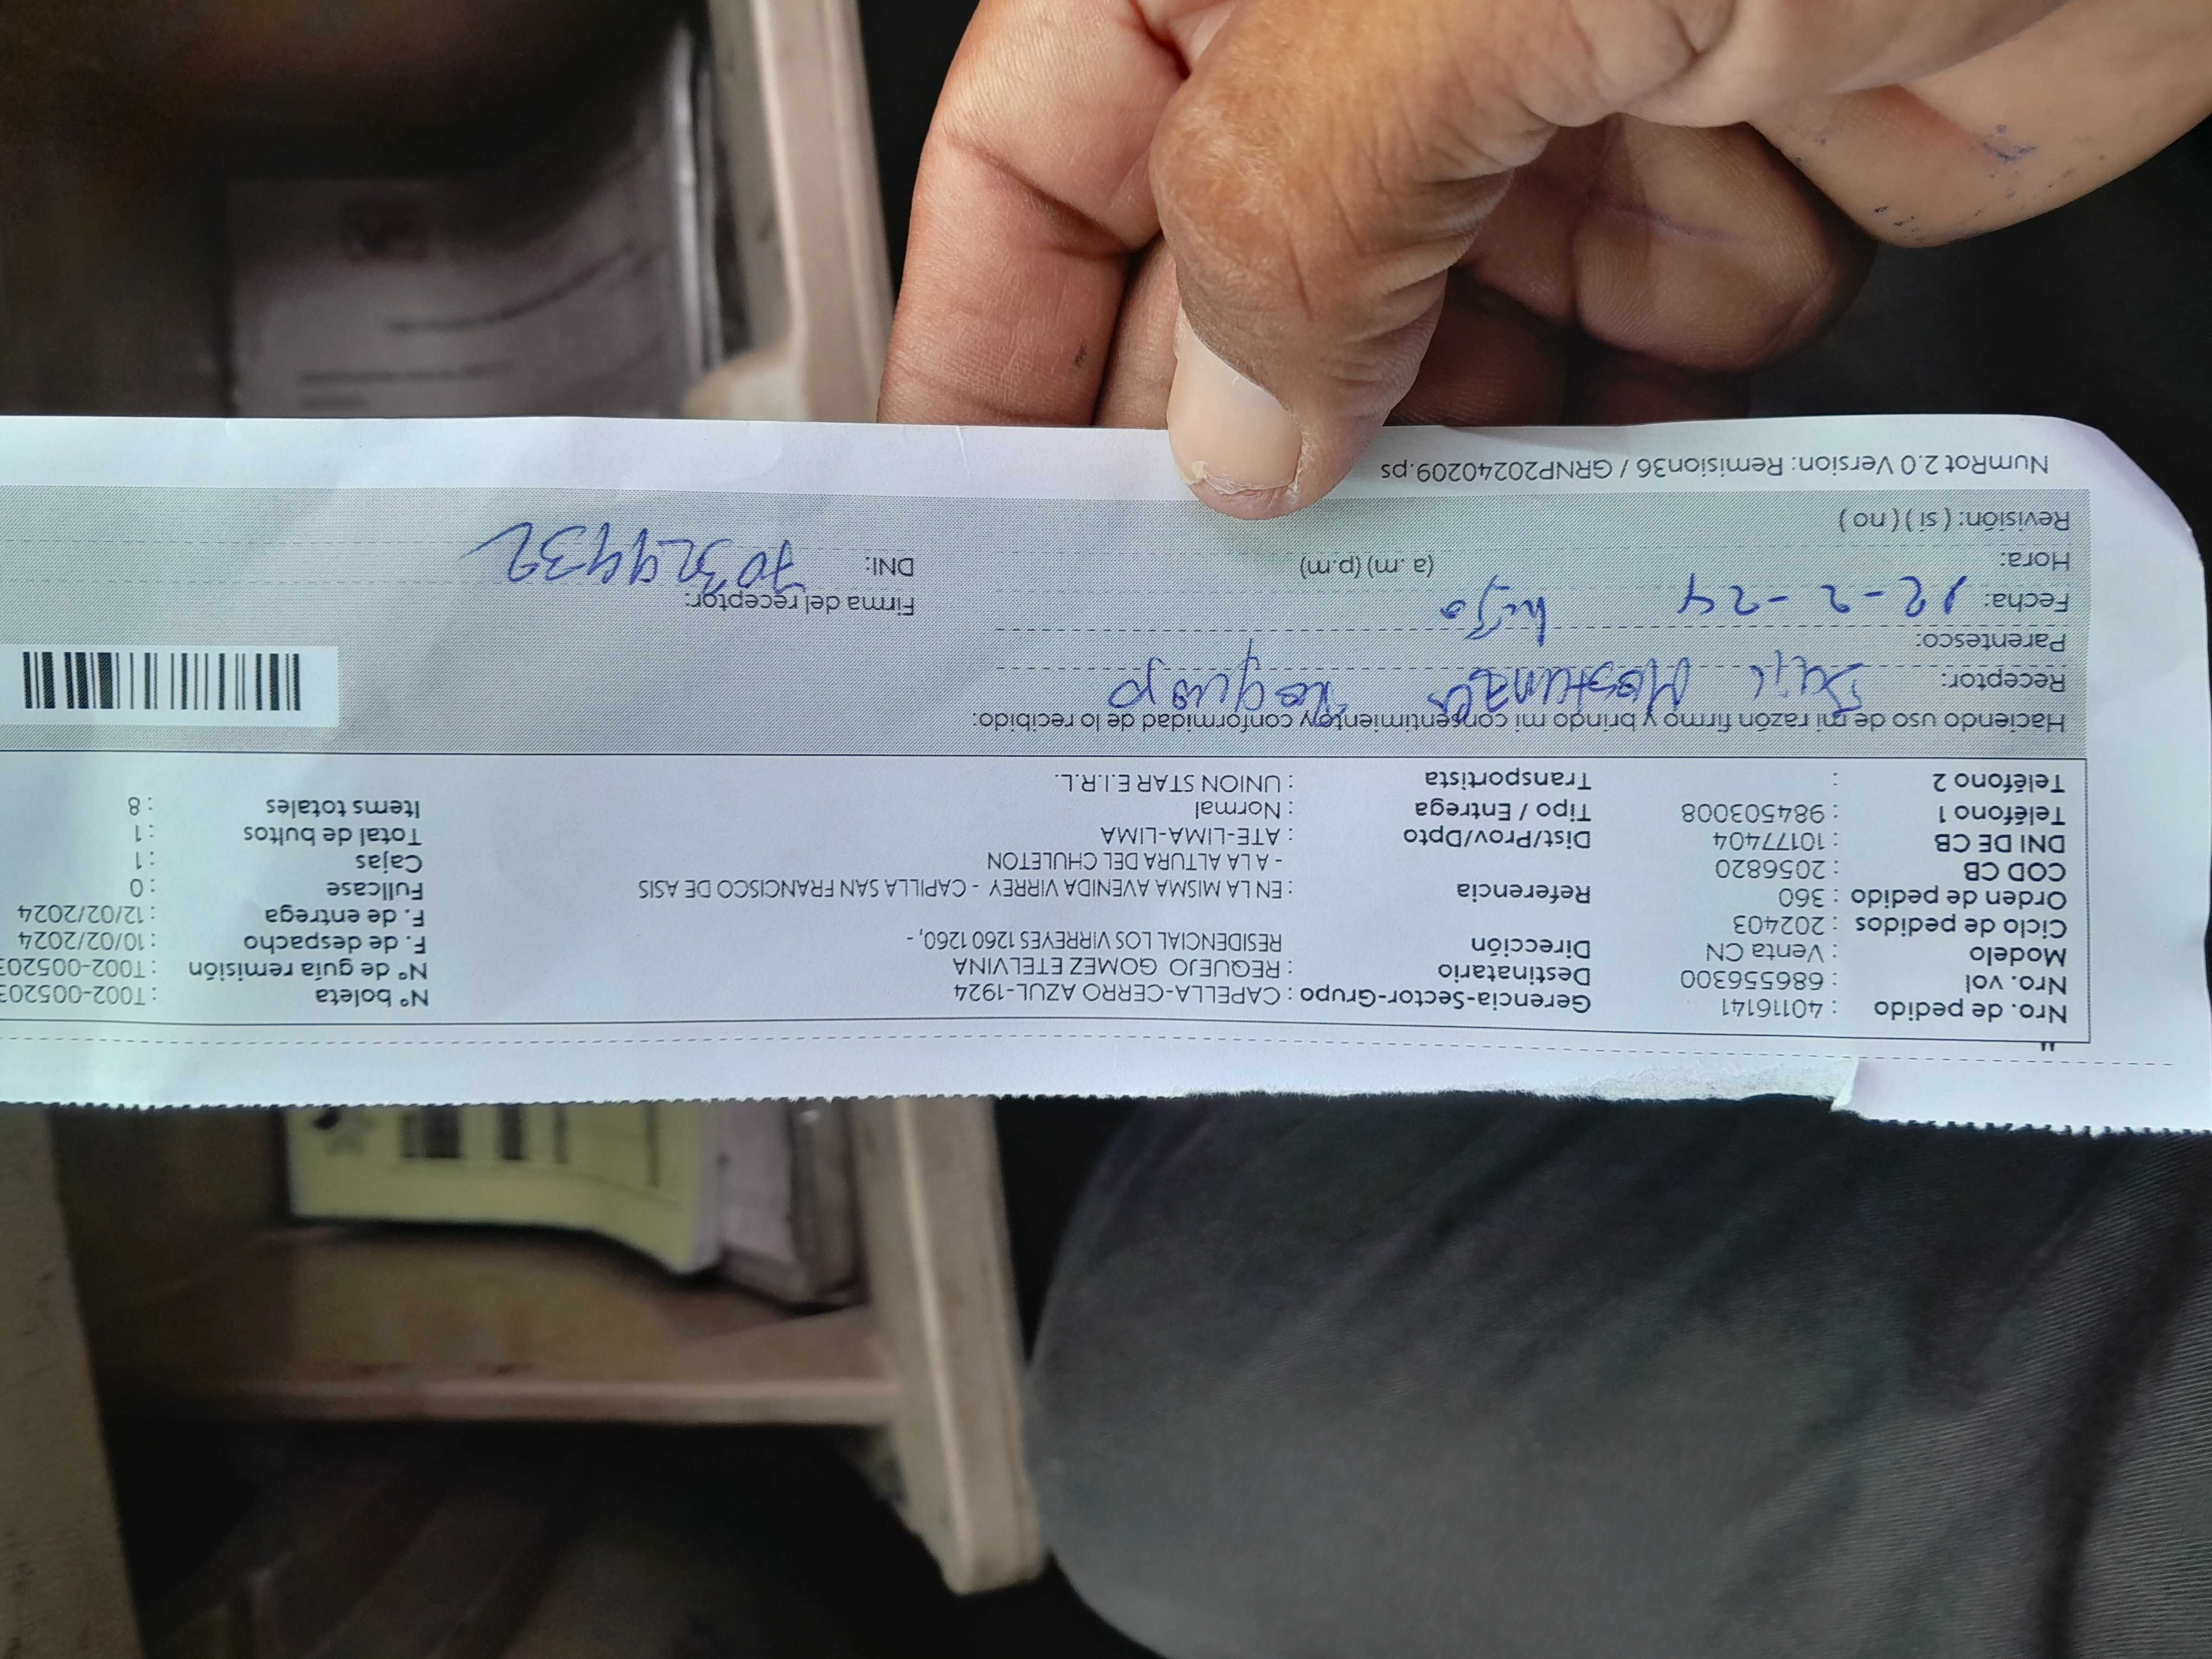 Nro. de pedido : 40116141 Gerencia-Sector-Grupo : CAPELLA-CERRO AZUL-1924 N° boleta : T002-005203
Nro. vol : 686556300 Destinatario : REQUEJO GOMEZ ETELVINA N° de guía remisión : T002-005203
Modelo : Venta CN Dirección RESIDENCIAL LOS VIRREYES 1260 1260, - F. de despacho : 10/02/2024
Ciclo de pedidos : 202403 F. de entrega : 12/02/2024
Orden de pedido : 360 Referencia : EN LA MISMA AVENIDA VIRREY - CAPILLA SAN FRANCISCO DE ASIS Fullcase : 0
COD CB : 2056820 - A LA ALTURA DEL CHULETON Cajas : 1
DNI DE CB : 10177404 Dist/Prov/Dpto : ATE-LIMA-LIMA Total de bultos : 1
Teléfono 1 : 984503008 Tipo / Entrega : Normal Items totales : 8
Teléfono 2 : Transportista : UNION STAR E.I.R.L.
Haciendo uso de mi razón firmo y brindo mi consentimiento y conformidad de lo recibido:
Receptor: Requejo
Parentesco: hijo
Fecha: 12-2-24 Firma del receptor:
Hora: (a. m) (p.m) DNI: 70329432
Revisión: ( si ) ( no )
NumRot 2.0 Version: Remision36 / GRNP20240209.ps